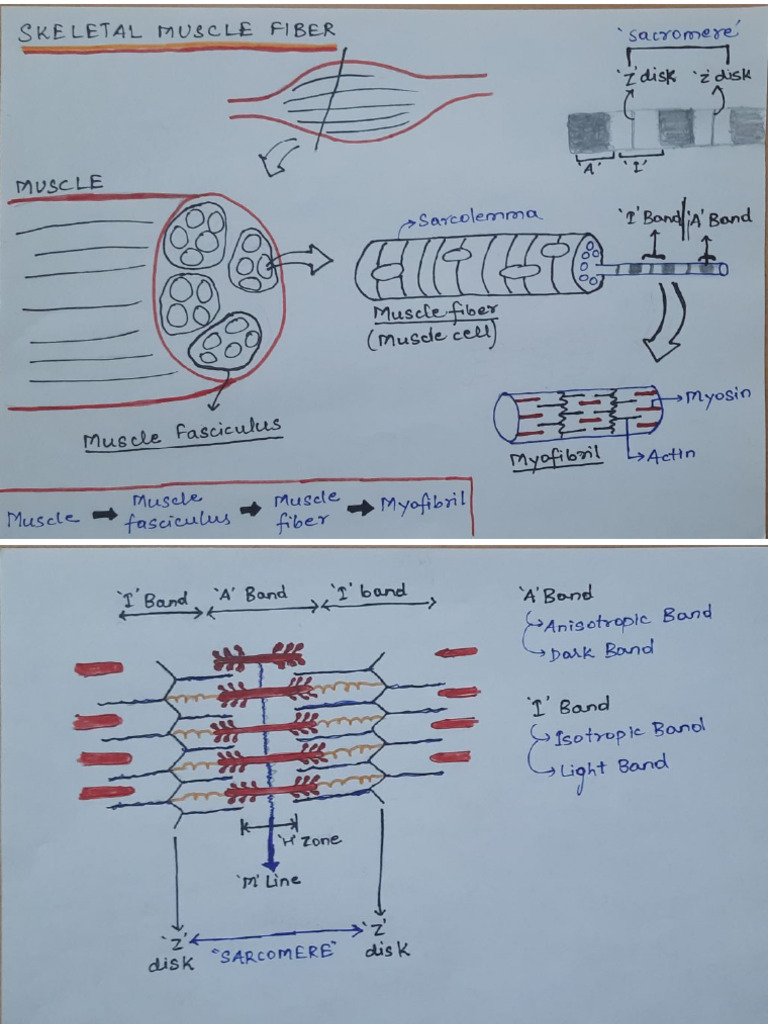 SKELETAL MUSCLE FIBER
'sacromere'
'Z' disk 'Z' disk
'A' 'I'
MUSCLE
Sarcolemma
'I' Band 'A' Band
Muscle fiber
(Muscle cell)
Muscle Fasciculus
Myosin
Actin
Myofibril
Muscle → Muscle fasciculus → Muscle fiber → Myofibril
'I' Band 'A' Band 'I' band
'A' Band
Anisotropic Band
Dark Band
'I' Band
Isotropic Band
Light Band
'H' Zone
'M' Line
'Z' disk "SARCOMERE" 'Z' disk